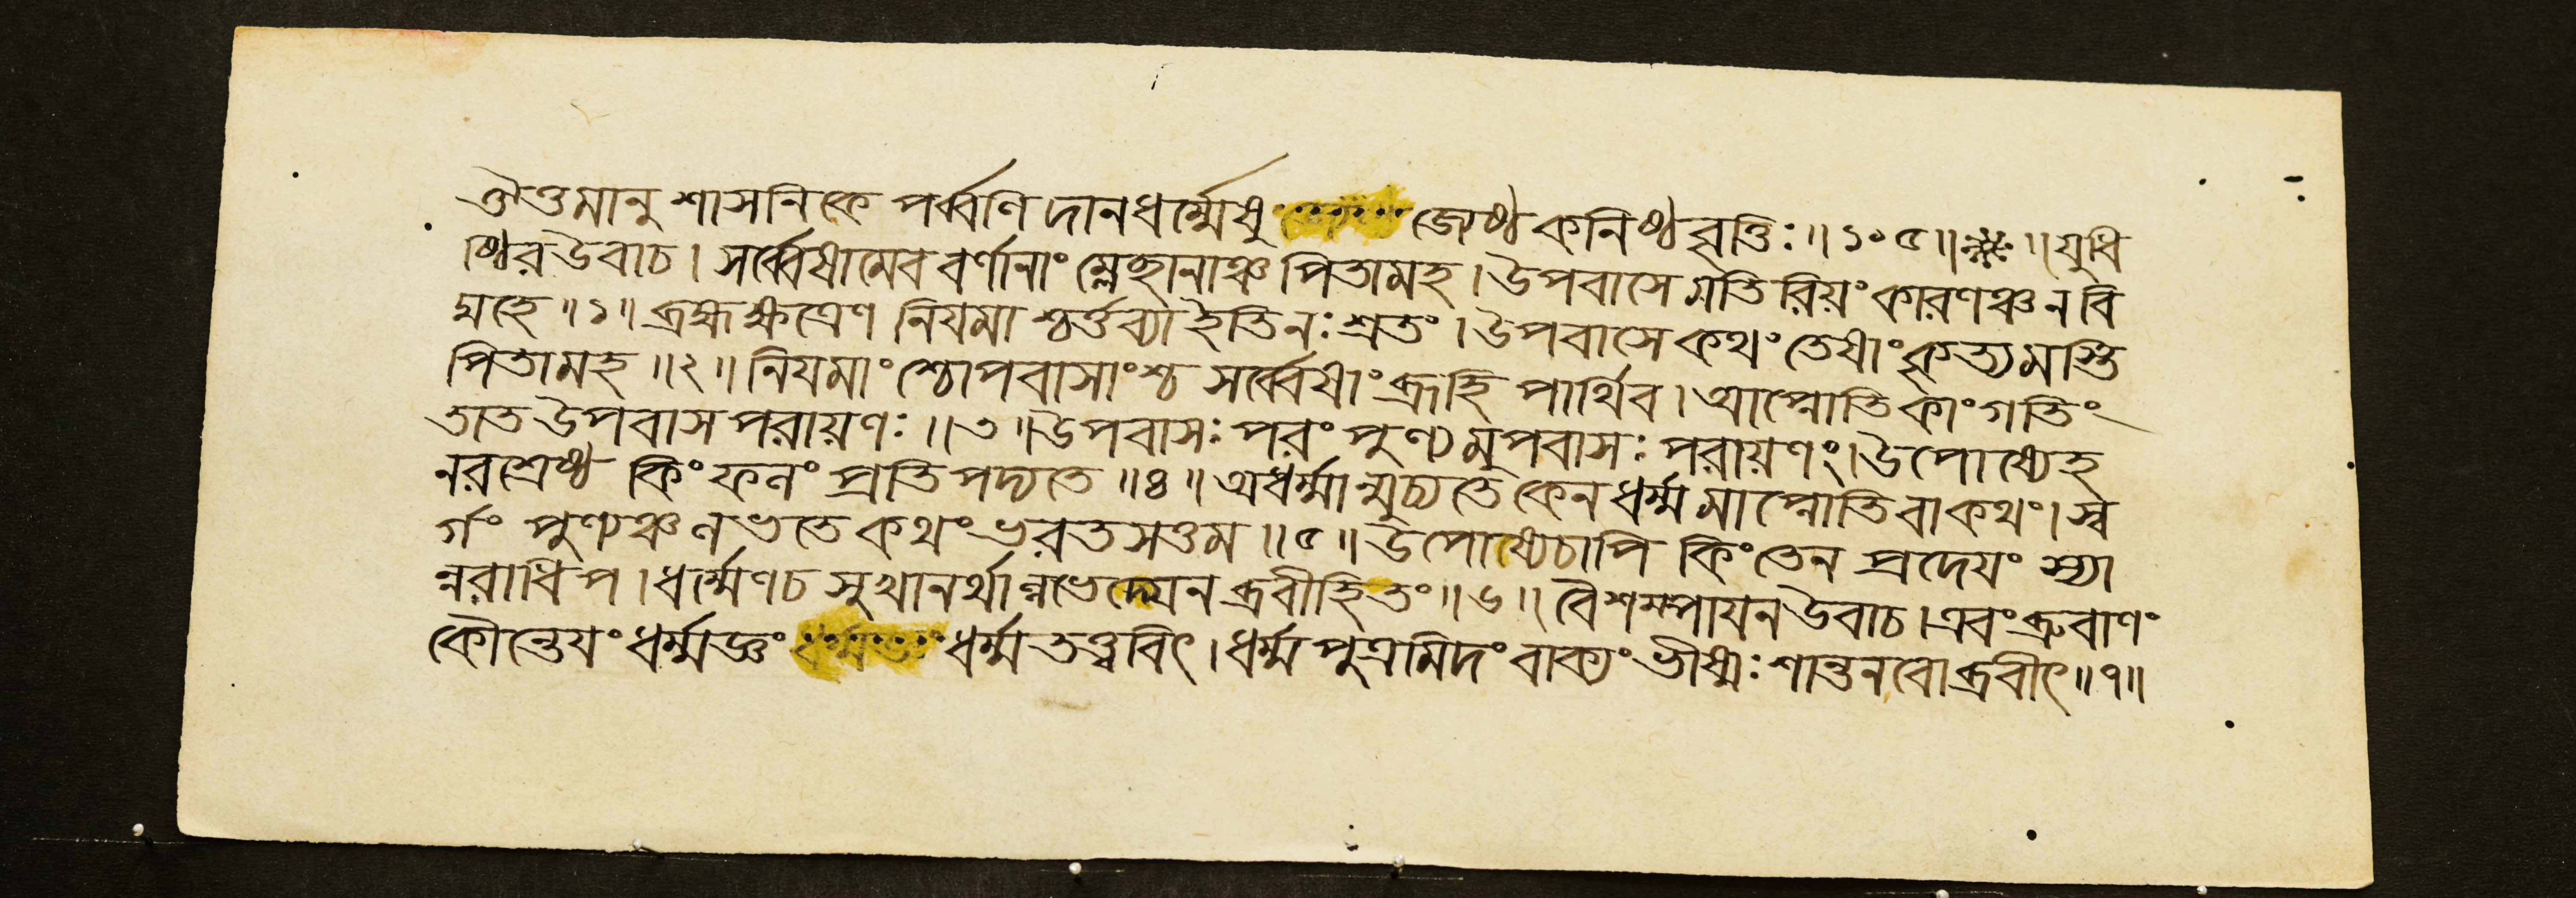 ঔত্তমানুশাসনিকে পর্ব্বণি দানধর্ম্মেষু জ্যেষ্ঠকনিষ্ঠবৃত্তিঃ॥১০৫॥ ॥যুধি
ষ্ঠির উবাচ। সর্ব্বেষামেব বর্ণানাং ম্লেছানাঞ্চ পিতামহ। উপবাসে মতিরিয়ং কারণঞ্চ ন বি
দ্মহে॥১॥ ব্রহ্মক্ষত্রেণ নিযমাশ্চর্ত্তব্যা ইতি নঃ শ্রুতং। উপবাসে কথং তেষাং কৃত্যমস্তি
পিতামহ॥২॥ নিযমাংশ্চোপবাসাংশ্চ সর্ব্বেষাং ব্রূহি পার্থিব। আপ্নোতি কাং গতিং
তাত উপবাসপরায়ণঃ॥৩॥ উপবাসঃ পরং পুণ্যমুপবাসঃ পরায়ণং। উপোষ্যেহ
নরশ্রেষ্ঠ কিং ফলং প্রতিপদ্যতে॥৪॥ অধর্ম্মান্মুচ্যতে কেন ধর্ম্মমাপ্নোতি বা কথং। স্ব
র্গং পুণ্যঞ্চ লভতে কথং ভরতসত্তম॥৫॥ উপোষ্য চাপি কিং তেন প্রদেযং স্যা
ন্নরাধিপ। ধর্ম্মেণ চ সুখানর্থান্লভেদ্যেন ব্রবীহি তং॥৬॥ বৈশম্পাযন উবাচ। এবং ব্রুবাণং
কৌন্তেযং ধর্ম্মজ্ঞং ধর্ম্মতত্ত্ববিৎ। ধর্ম্মপুত্রমিদং বাক্যং ভীষ্মঃ শান্তনবোব্রবীৎ॥৭॥